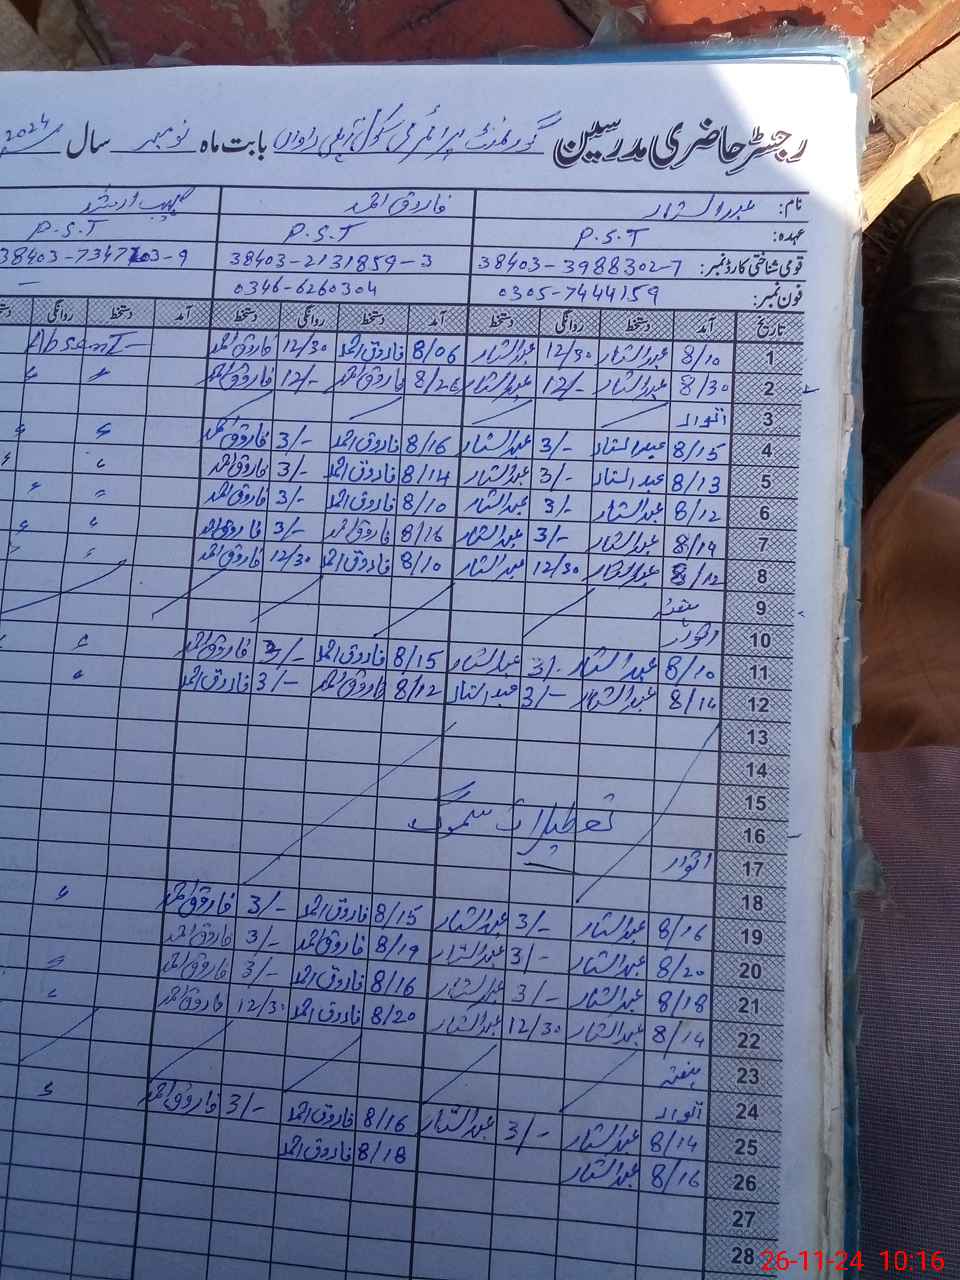 رجسٹر حاضری مدرسین گورنمنٹ پرائمری سکول بابت ماہ نومبر سال 2024
نام: عبدالستار فاروق احمد
عہدہ: P.S.T P.S.T P.S.T
قومی شناختی کارڈ نمبر: 38403-3988302-7 38403-2131859-3
فون نمبر: 0305-7444159 0346-6260304 —
تاریخ آمد دستخط روانگی دستخط آمد دستخط روانگی دستخط آمد دستخط روانگی
1 8/10 عبدالستار 12/30 عبدالستار 8/06 فاروق احمد 12/30 فاروق احمد Absent
2 8/30 عبدالستار 12/- عبدالستار 8/26 فاروق احمد 12/- فاروق احمد
3 اتوار
4 8/15 عبدالستار 3/- عبدالستار 8/16 فاروق احمد 3/- فاروق احمد
5 8/13 عبدالستار 3/- عبدالستار 8/14 فاروق احمد 3/- فاروق احمد
6 8/12 عبدالستار 3/- عبدالستار 8/10 فاروق احمد 3/- فاروق احمد
7 8/14 عبدالستار 3/- عبدالستار 8/16 فاروق احمد 3/- فاروق احمد
8 8/12 عبدالستار 12/30 عبدالستار 8/10 فاروق احمد 12/30 فاروق احمد
9 ہفتہ
10 اتوار
11 8/10 عبدالستار 3/- عبدالستار 8/15 فاروق احمد 3/- فاروق احمد
12 8/14 عبدالستار 3/- عبدالستار 8/12 فاروق احمد 3/- فاروق احمد
13
14
15
16 تعطیلات سموگ
17 اتوار
18
19 8/16 عبدالستار 3/- عبدالستار 8/15 فاروق احمد 3/- فاروق احمد
20 8/20 عبدالستار 3/- عبدالستار 8/19 فاروق احمد 3/- فاروق احمد
21 8/18 عبدالستار 3/- عبدالستار 8/16 فاروق احمد 3/- فاروق احمد
22 8/14 عبدالستار 12/30 عبدالستار 8/20 فاروق احمد 12/30 فاروق احمد
23 ہفتہ
24 اتوار
25 8/14 عبدالستار 3/- عبدالستار 8/16 فاروق احمد 3/- فاروق احمد
26 8/16 عبدالستار 8/18 فاروق احمد
27
28
26-11-24 10:16